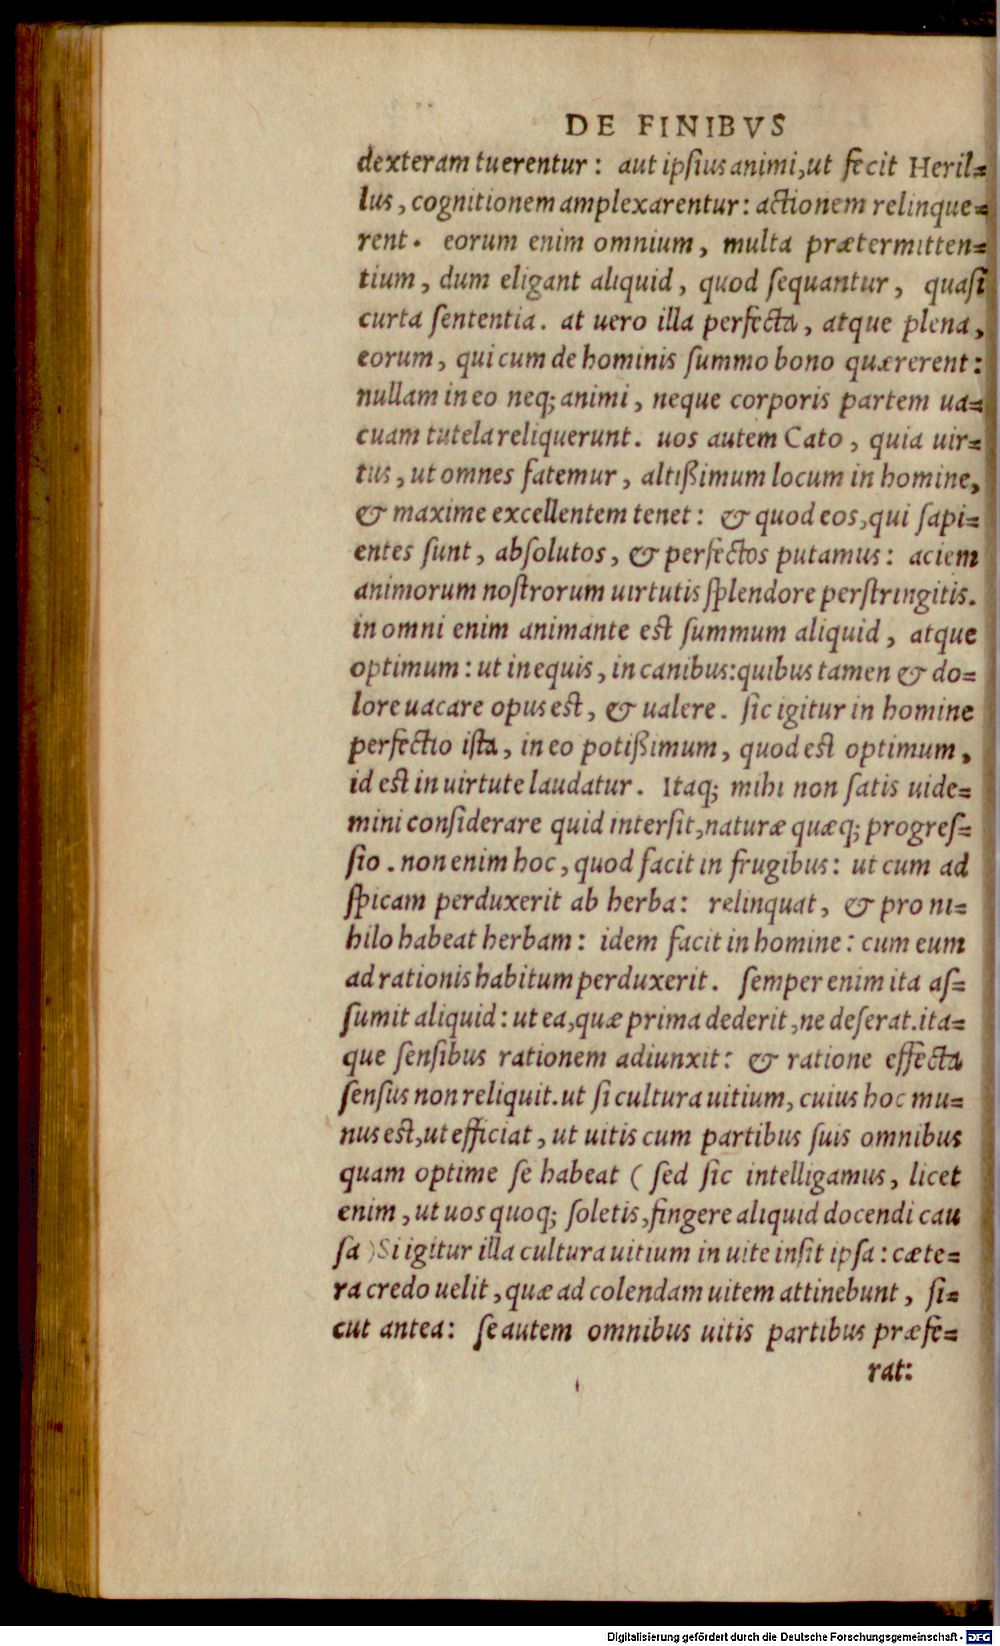 DE FINIBVS
dexteram tuerentur: aut ipſius animi, ut fecit Heril=
lus, cognitionem amplexarentur: actionem relinque=
rent. eorum enim omnium, multa prætermitten=
tium, dum eligant aliquid, quod ſequantur, quaſi
curta ſententia. at uero illa perfecta, atque plena,
eorum, qui cum de hominis ſummo bono quærerent:
nullam in eo neq; animi, neque corporis partem ua=
cuam tutela reliquerunt. uos autem Cato, quia uir=
tus, ut omnes fatemur, altißimum locum in homine,
& maxime excellentem tenet: & quod eos, qui ſapi=
entes ſunt, abſolutos, & perfectos putamus: aciem
animorum noſtrorum uirtutis ſplendore perſtringitis.
in omni enim animante eſt ſummum aliquid, atque
optimum: ut in equis, in canibus: quibus tamen & do=
lore uacare opus eſt, & ualere. ſic igitur in homine
perfectio iſta, in eo potißimum, quod eſt optimum,
id eſt in uirtute laudatur. Itaq; mihi non ſatis uide=
mini conſiderare quid interſit, naturæ quæq; progreſ=
ſio. non enim hoc, quod facit in frugibus: ut cum ad
ſpicam perduxerit ab herba: relinquat, & pro ni=
hilo habeat herbam: idem facit in homine: cum eum
ad rationis habitum perduxerit. ſemper enim ita aſ=
ſumit aliquid: ut ea, quæ prima dederit, ne deſerat. ita=
que ſenſibus rationem adiunxit: & ratione effecta
ſenſus non reliquit. ut ſi cultura uitium, cuius hoc mu=
nus eſt, ut efficiat, ut uitis cum partibus ſuis omnibus
quam optime ſe habeat ( ſed ſic intelligamus, licet
enim, ut uos quoq; ſoletis, fingere aliquid docendi cau
ſa ) Si igitur illa cultura uitium in uite inſit ipſa: cæte=
ra credo uelit, quæ ad colendam uitem attinebunt, ſi=
cut antea: ſe autem omnibus uitis partibus præfe=
rat:
Digitalisierung gefördert durch die Deutsche Forschungsgemeinschaft - DFG